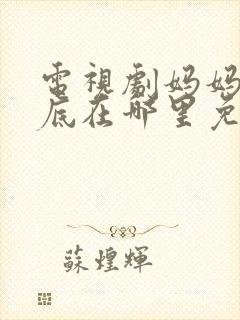 電視劇媽媽
底在哪里免
蘇煌輝